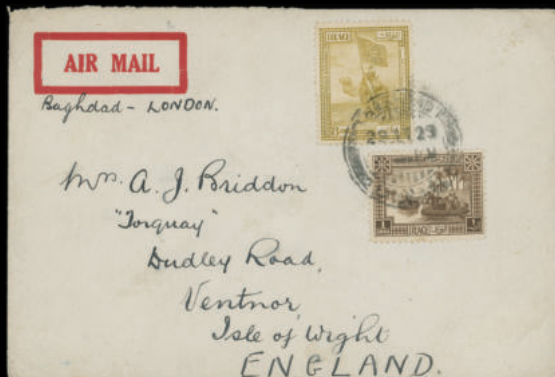 AIR MAIL
Baghdad - LONDON.
IRAQ
29
1
IRAQ
Mrs. A. J. Briddon
"Torquay"
Dudley Road,
Ventnor,
Isle of Wight
ENGLAND.